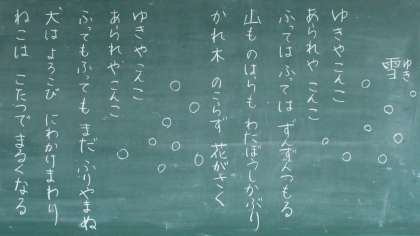 雪
ゆき
ゆきやこんこ
あられやこんこ
ふっては ふっては ずんずんつもる
山ものはらも わたぼうしかぶり
かれ木 のこらず 花がさく
ゆきやこんこ
あられやこんこ
ふってもふっても まだ ふりやまぬ
犬は よろこび にわかけまわり
ねこは こたつで まるくなる